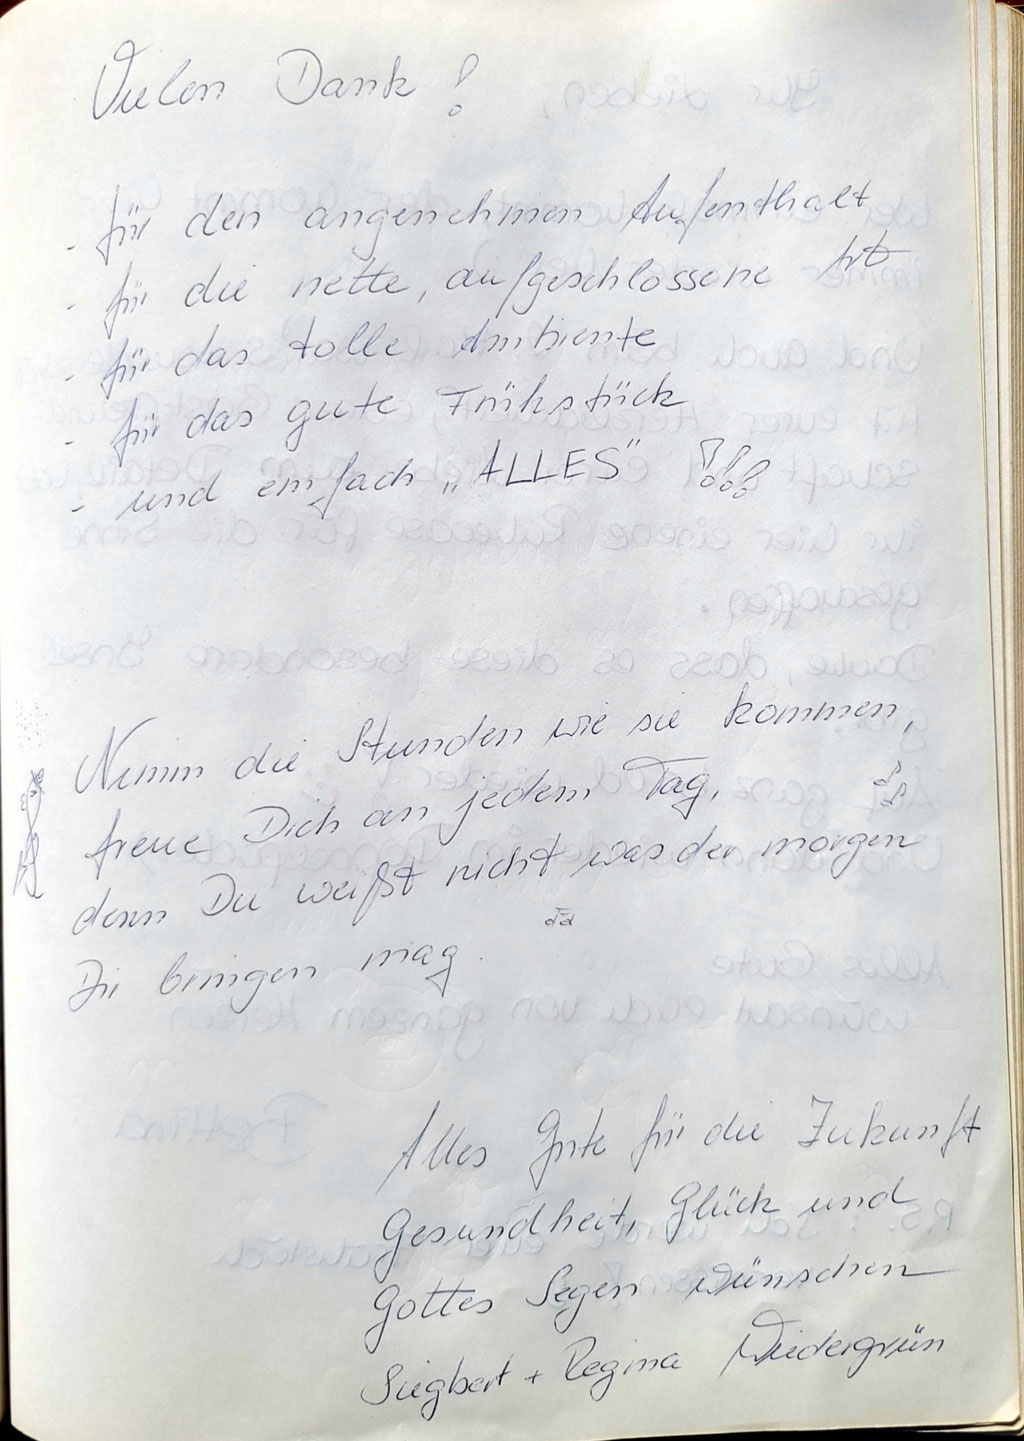 Vielen Dank!
- für den angenehmen Aufenthalt
- für die nette, aufgeschlossene Art
- für das tolle Ambiente
- für das gute Frühstück
- und einfach „ALLES" !!!
Nimm die Stunden wie sie kommen,
freue Dich an jedem Tag,
denn Du weißt nicht was der morgen
Dir bringen mag.
Alles Gute für die Zukunft
Gesundheit, Glück und
Gottes Segen wünschen
Siegbert + Regina Wiedergrün